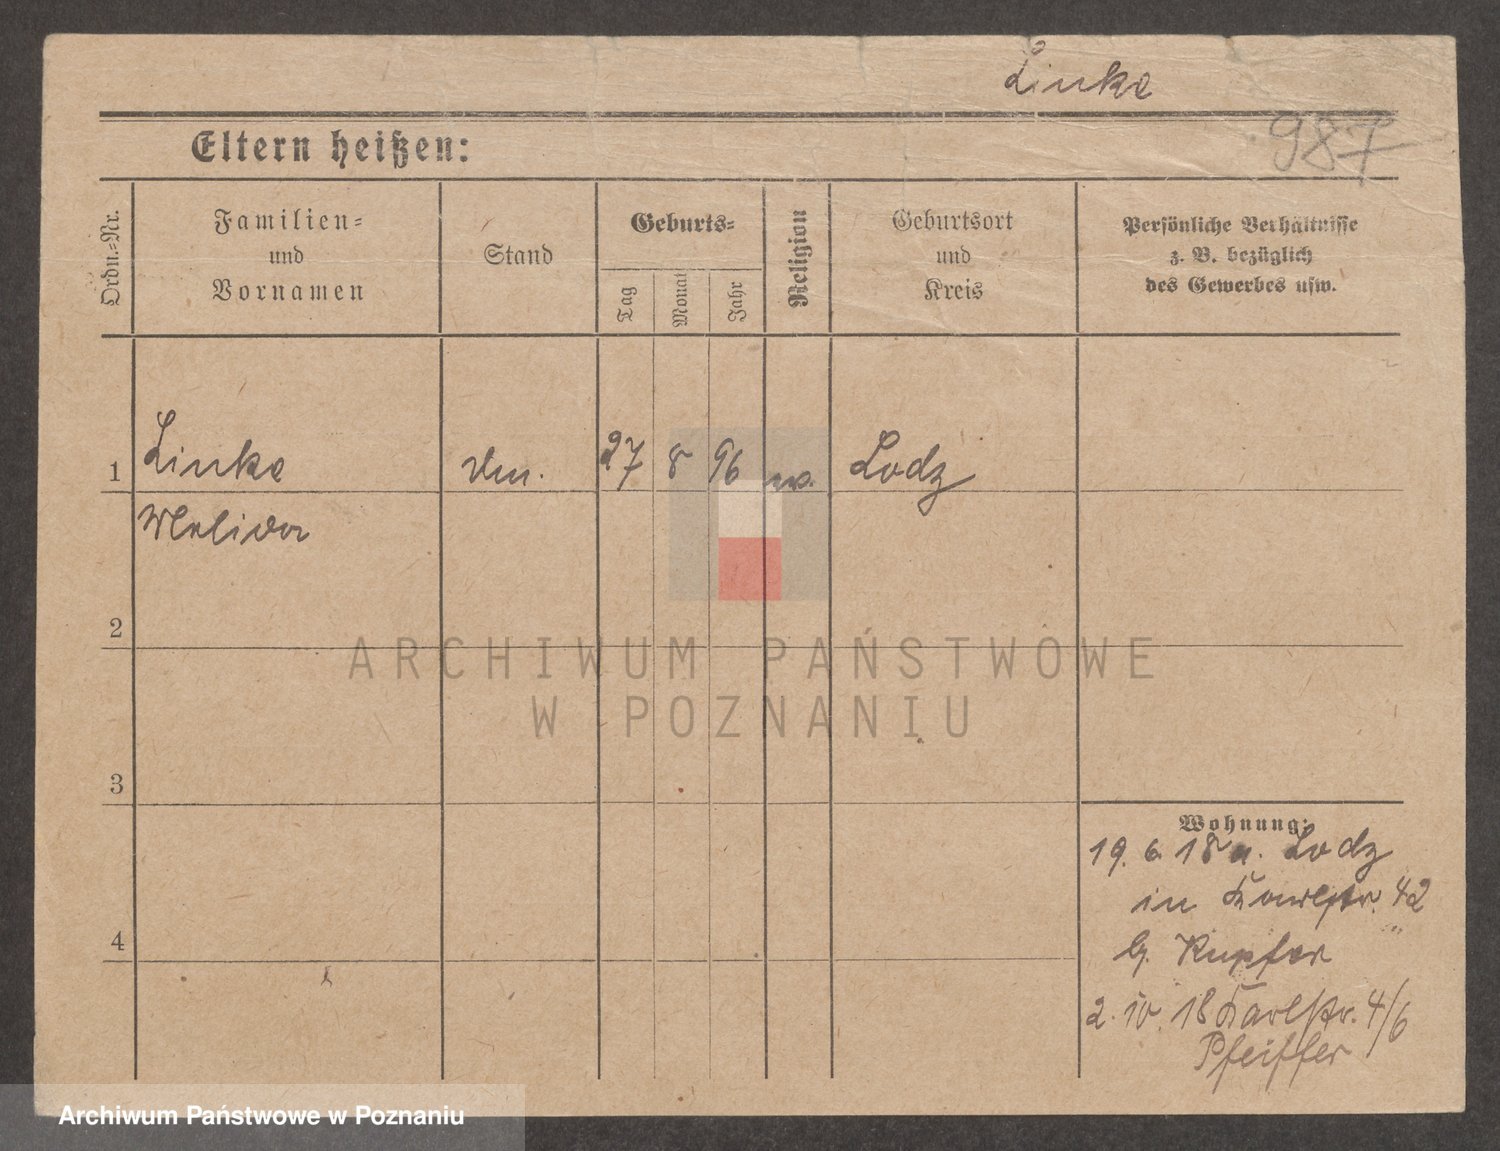 Linke
987
Eltern heißen:
Ordn.=Nr.
Familien=
und
Vornamen
Stand
Geburts=
Tag
Monat
Jahr
Religion
Geburtsort
und
Kreis
Persönliche Verhältnisse
z. B. bezüglich
des Gewerbes usw.
1
Linke
27
8
96
Lodz
2
3
4
Wohnung:
19. 6. 18 a. Lodz
in Karlstr. 42
b. Kupfer
2. 10. 18 Karlstr. 4/6
Pfeiffer
ARCHIWUM PAŃSTWOWE
W POZNANIU
Archiwum Państwowe w Poznaniu